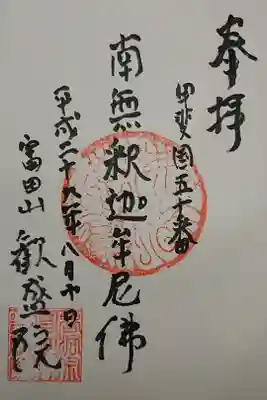 奉拝
甲斐国五十番
南無釈迦牟尼佛
平成二十九年八月十日
富田山
歓盛院